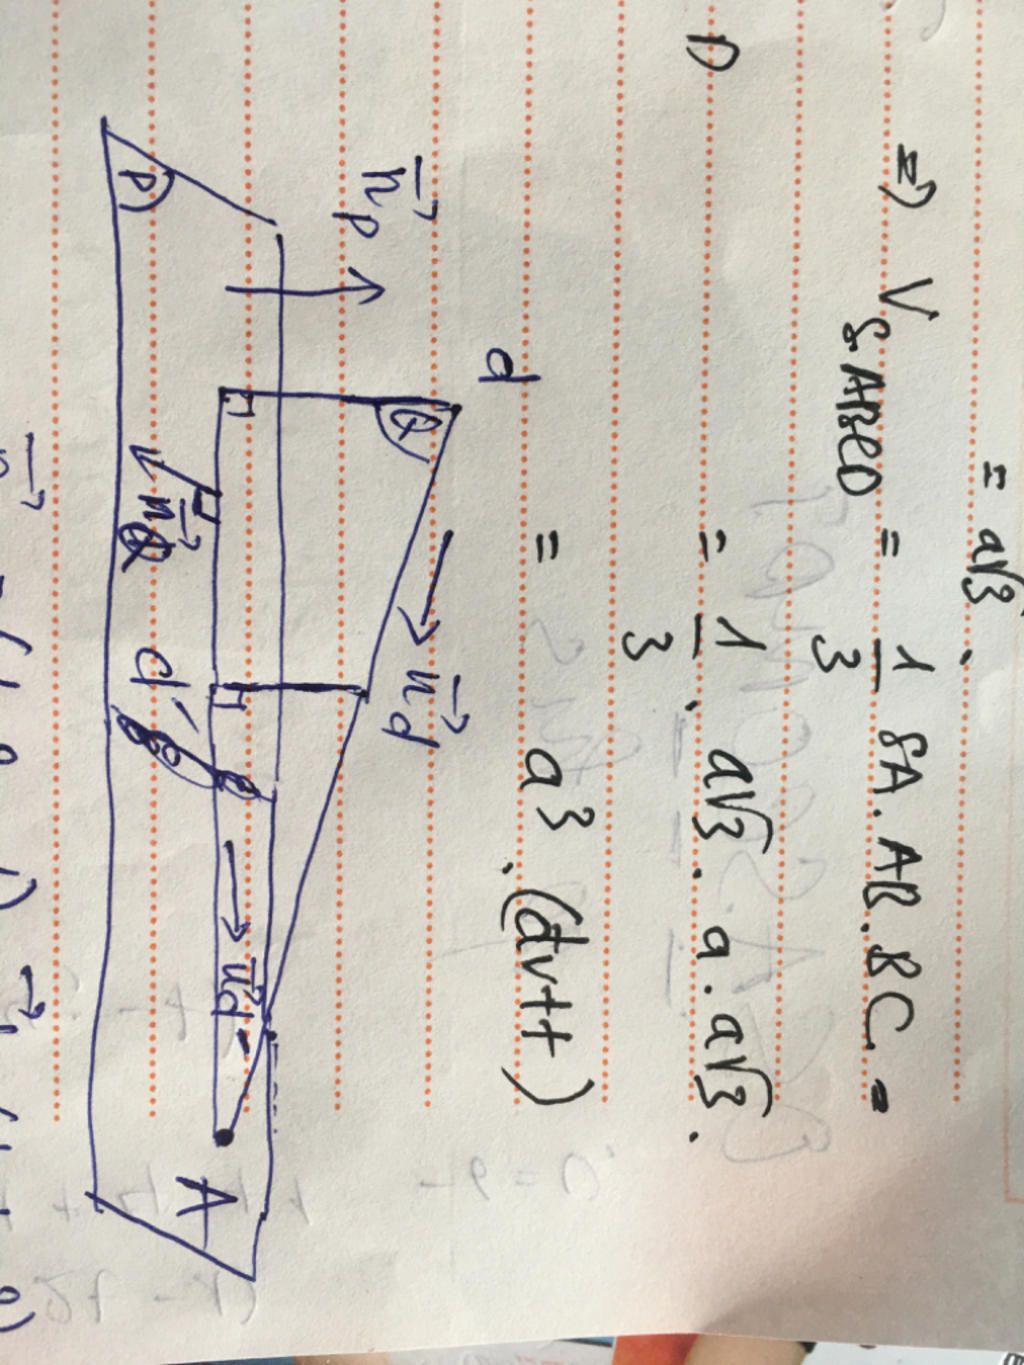 = a√3.
=> V S.ABCD = 1/3 SA.AB.BC =
= 1/3 . a√3 . a . a√3 .
= a³ . (đvtt)
D
d
n⃗p
P
Q
u⃗d
n⃗Q
d'
u⃗d'
A